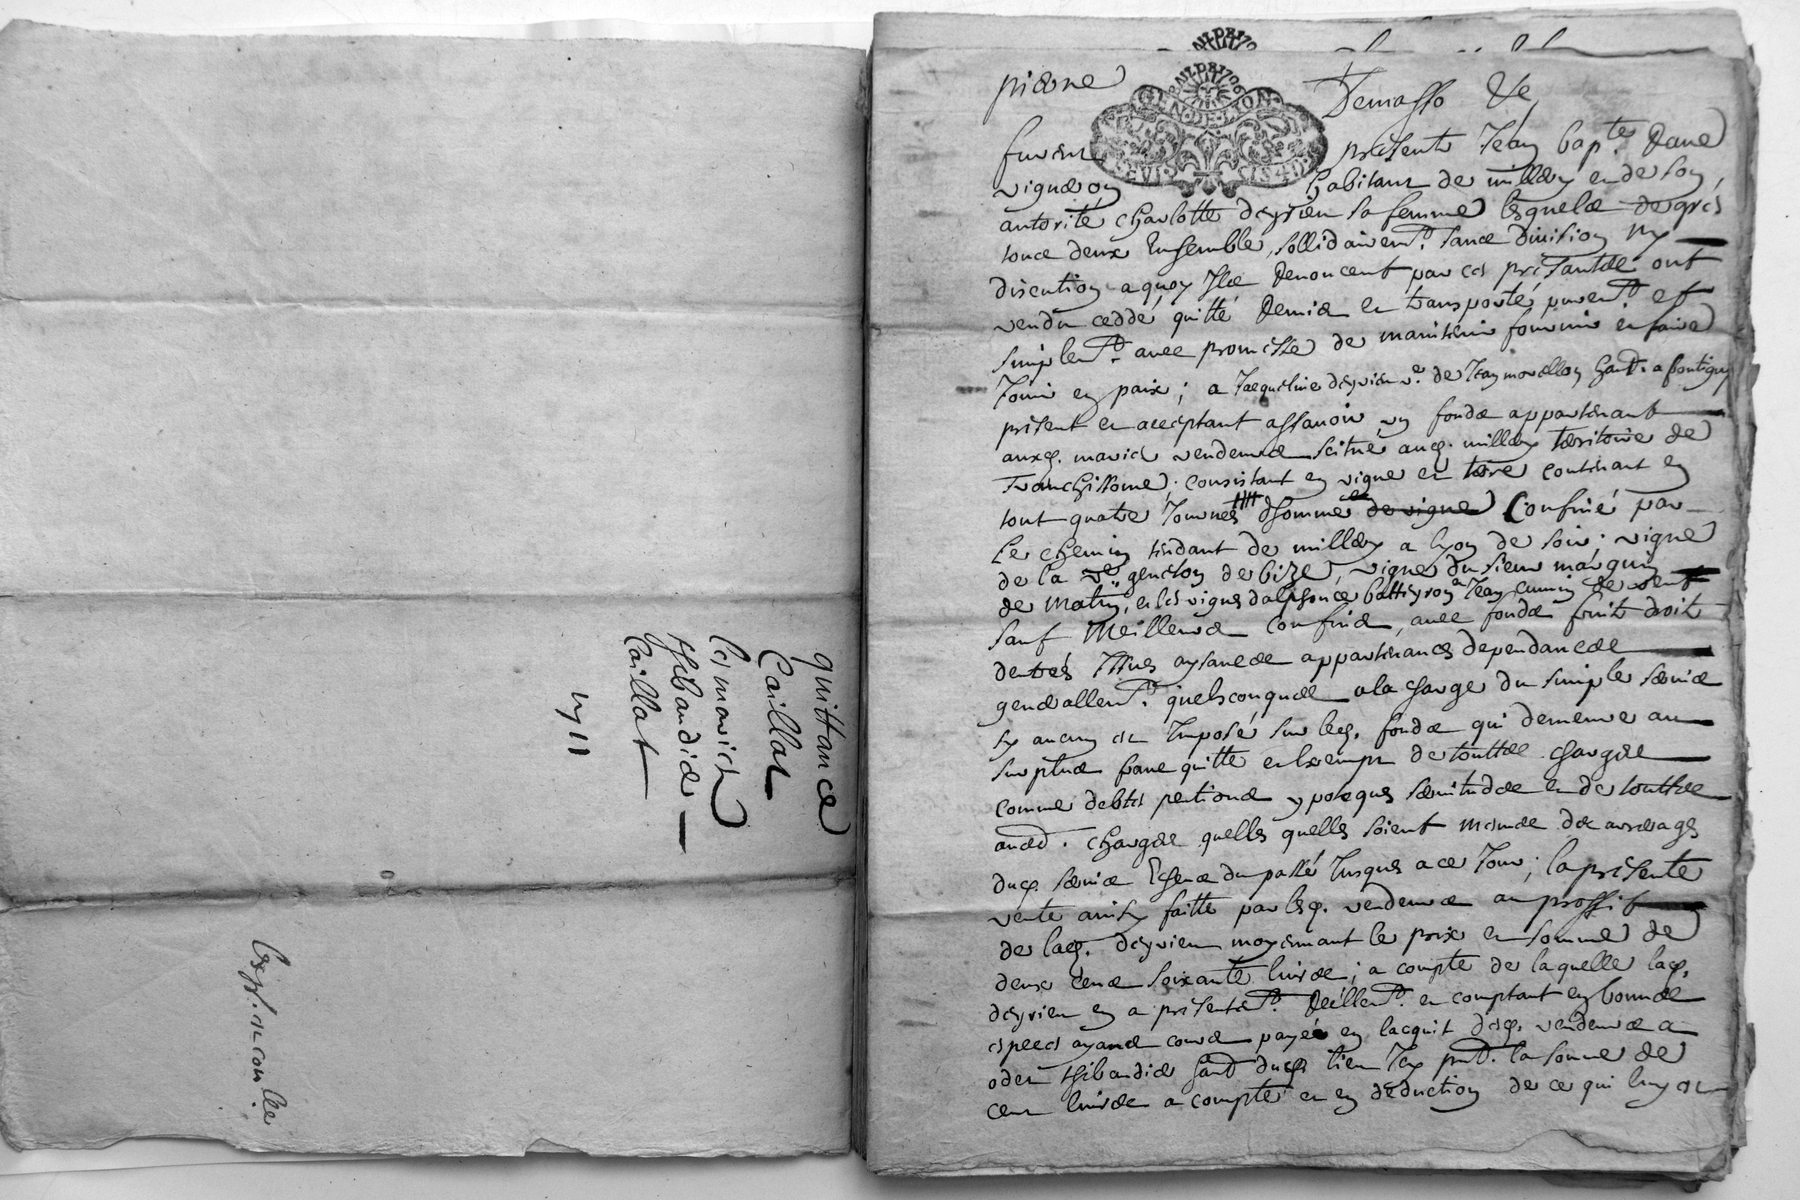 quittance
Caillat
les mariés
Thibaudier
Caillat
Exp. et con.lée
GEN. DE LION
pierre Demasso &c
furent présents Jean bap.te Dane
vigneron habitant de millery et de son
autorité charlotte deyrieu sa femme lesquels de grés
tous deux Ensemble, sollidairem.t sans Division ny
discution a quoy Ils Renoncent par ces présantes ont
vendu ceddé quitté Remis et transporté purem.t et
simplem.t avec promesse de maintenir fournir et faire
Jouir en paix; a Jacqueline deyrieu v.e de Jean morellon hant. a
présent et acceptant assavoir un fonds appartenant
auxd. mariés vendeurs scitué aud. millery térritoire de
consistant en vigne et térre contenant en
tout quatre Journés d'homme de vigne Confiné par
Le chemin tendant de millery a lyon de soir; vigne
de la v.e de bize, vigne du sieur marquin
de matin, et les vignes dalphonce Jean de vent
sauf Meilleurs confins, avec fonds fruits droit
dentrés Issues aysances appartenances dependances
generallem.t quelsconques a la charge du simple servis
sy aucun est Imposé sur led. fonds qui demeure au
surplus franc quitte et Exempt de touttes charges
comme debtes pentions ypoteques servitudes et de touttes
autres charges quelles quelles soient mesmes des arrerages
dud. servis Echeus du passé Jusques a ce Jour; la présente
vente ainsy faitte par lesd. vendeurs au proffit
de lad. deyrieu moyennant le prix et somme de
deux cens soixante livres; a compte de laquelle lad.
deyrieu en a présentem.t Réellem.t et comptant en bonnes
especes ayans cours payé en lacquit desd. vendeurs a
odet thibaudier hant dud. lieu Icy pnt. la somme de
cent livres a compte et en déduction de ce qui luy est